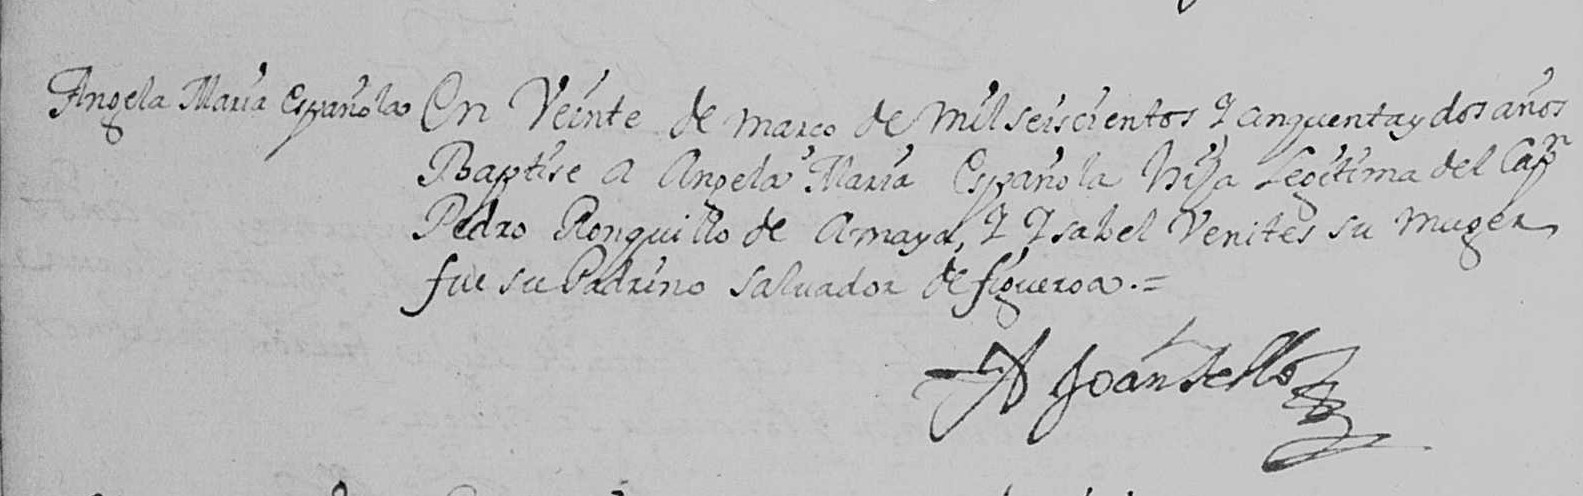 Angela Maria Española En Veinte de março de Mil seiscientos y cinquenta y dos años
Baptise a Angela Maria Española hija Legitima del Cap.n
Pedro Ronquillo de Amaya, y Ysabel Venites su muger
fue su Padrino Salvador de figueroa.=
Joan tello